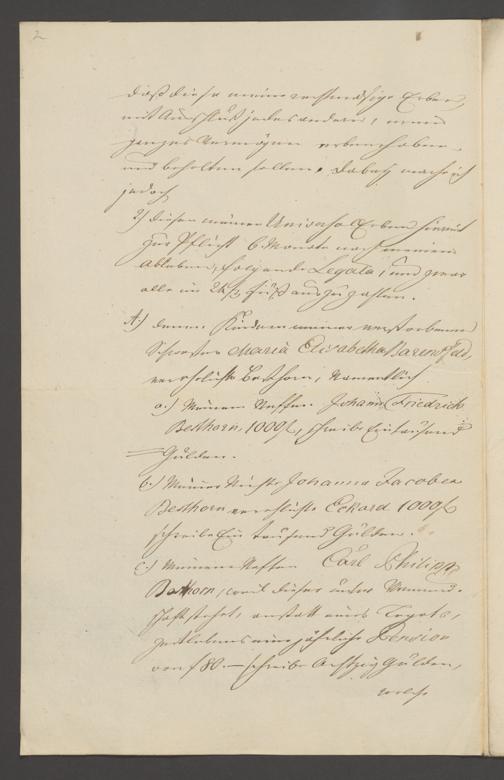 2
daß diese meine rechtmäßige Erben,
mit Ausschluß jedes andern, mein
ganzes Vermögen erben, haben
und behalten sollen. Dabey mache ich
jedoch
2) diesen meinen Universal Erben hiermit
zur Pflicht 6 Monate nach meinem
Ableben, folgende Legata, und zwar
alle im 24 f Fuß auszuzahlen.
A.) denen Kindern meiner verstorbenen
Schwester Maria Elisabetha Barensfeld,
verehelichte Besthorn, Namentlich
a.) Meinem Neffen Johann Friedrich
Besthorn, 1000 f, schreibe Eintausend
Gulden.
b.) Meiner Niechte Johanna Jacobea
Besthorn verehlichte Eckard 1000 f
schreibe Ein tausend Gulden.
c.) Meinem Neffen Carl Philipp
Besthorn, weil dieser unter Vormund-
schaft stehet, anstatt eines Legats,
zeitlebens eine jährliche Pension
von f 80.— schreibe Achtzig Gulden,
welche